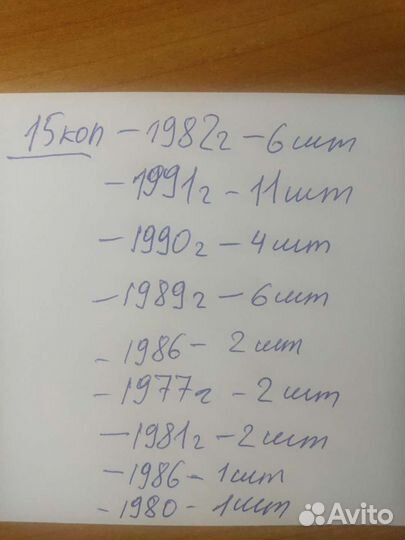 15 коп - 1982г - 6 шт
- 1991г - 11 шт
- 1990г - 4 шт
- 1989г - 6 шт
- 1986 - 2 шт
- 1977г - 2 шт
- 1981г - 2 шт
- 1986 - 1 шт
- 1980 - 1 шт
Avito